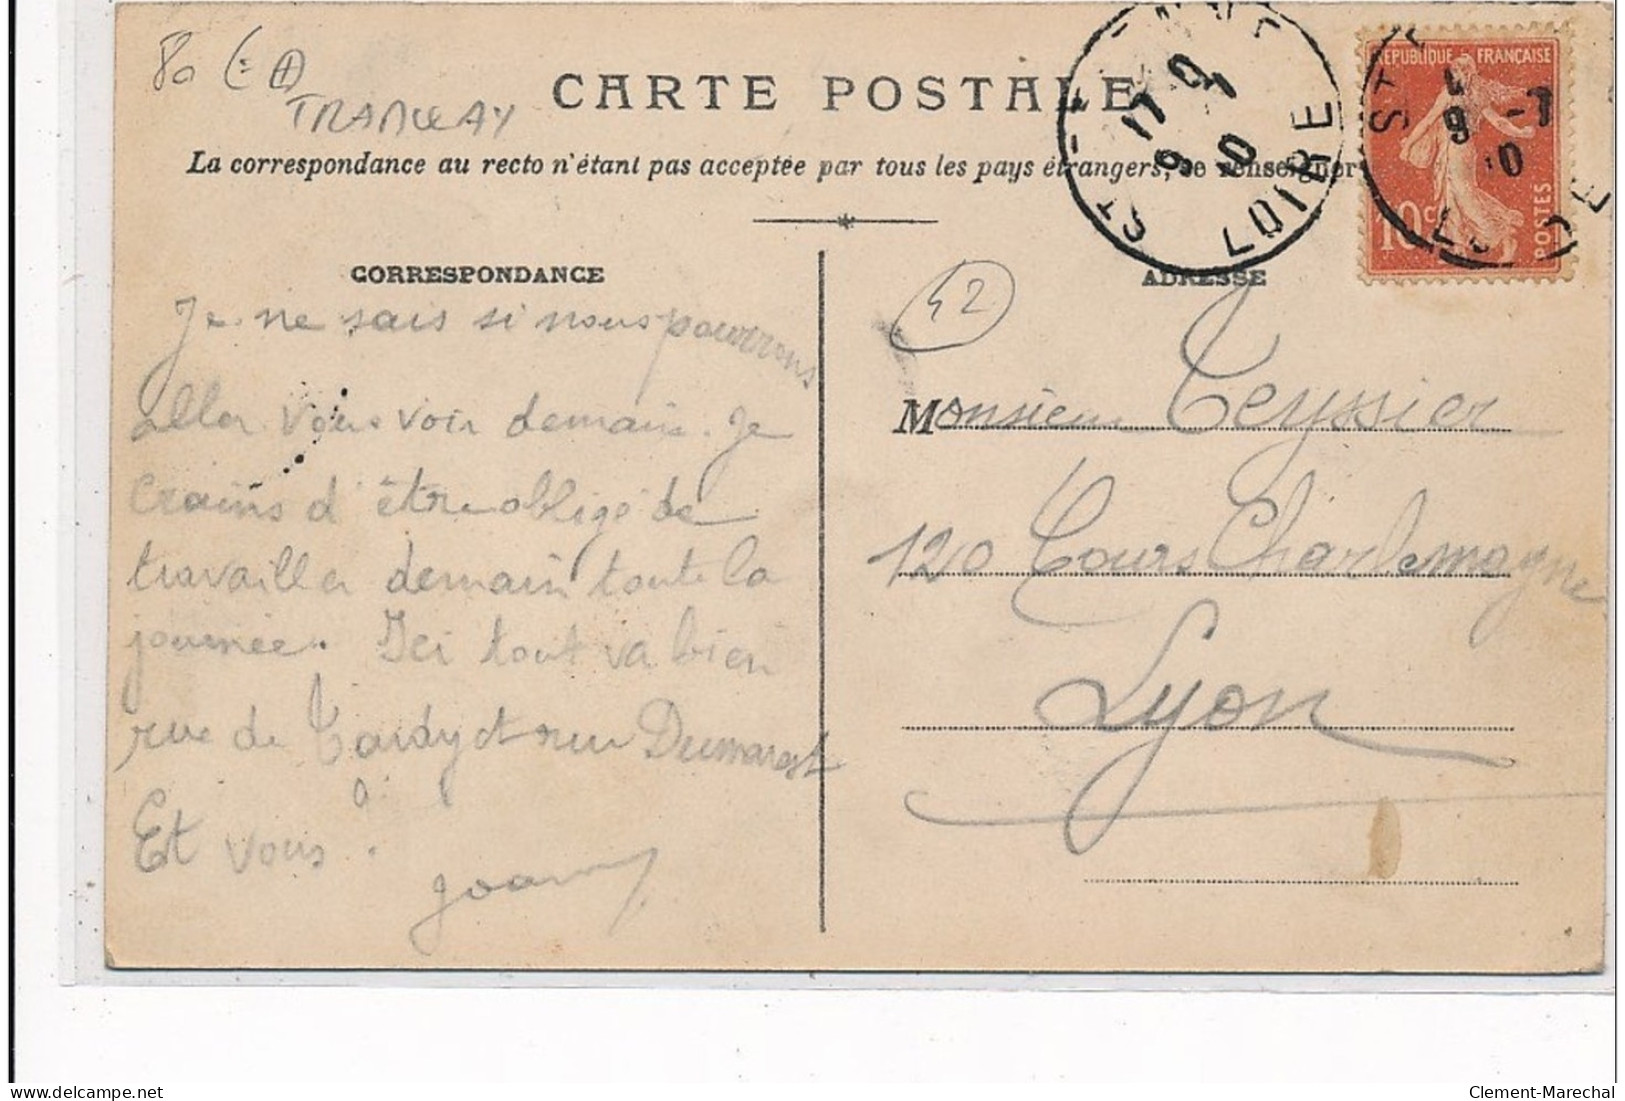 80 (= A)
TRAMWAY
CARTE POSTALE
La correspondance au recto n'étant pas acceptée par tous les pays étrangers, se renseigner
17
9 -7
10
LOIRE
RÉPUBLIQUE FRANÇAISE
10c
POSTES
ST
9 -7
10
CORRESPONDANCE
Je ne sais si nous pourrons
aller vous voir demain. Je
crains d'être obligé de
travailler demain toute la
journée. Ici tout va bien
rue de Tardy et rue Dumarest
Et vous ?
Joanny
ADRESSE
42
Monsieur Teyssier
120 Cours Charlemagne
Lyon
Clement-Marechal